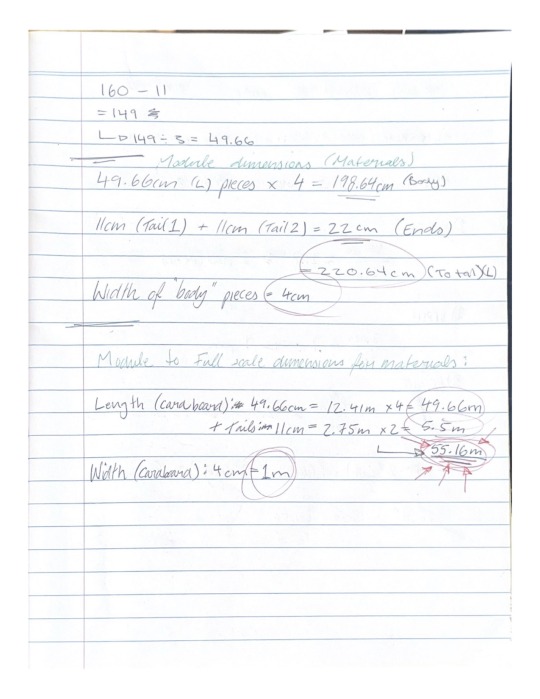 160 - 11
= 149
↳ 149 ÷ 3 = 49.66
Module dimensions (Materials)
49.66cm (L) pieces x 4 = 198.64cm (Body)
11cm (Tail 1) + 11cm (Tail 2) = 22cm (Ends)
= 220.64cm (Total)(L)
Width of "body" pieces = 4cm
Module to Full scale dimensions for materials:
Length (cardboard): 49.66cm = 12.41m x4 = 49.66m
+ Tails: 11cm = 2.75m x2 = 5.5m
55.16m
Width (cardboard): 4cm = 1m